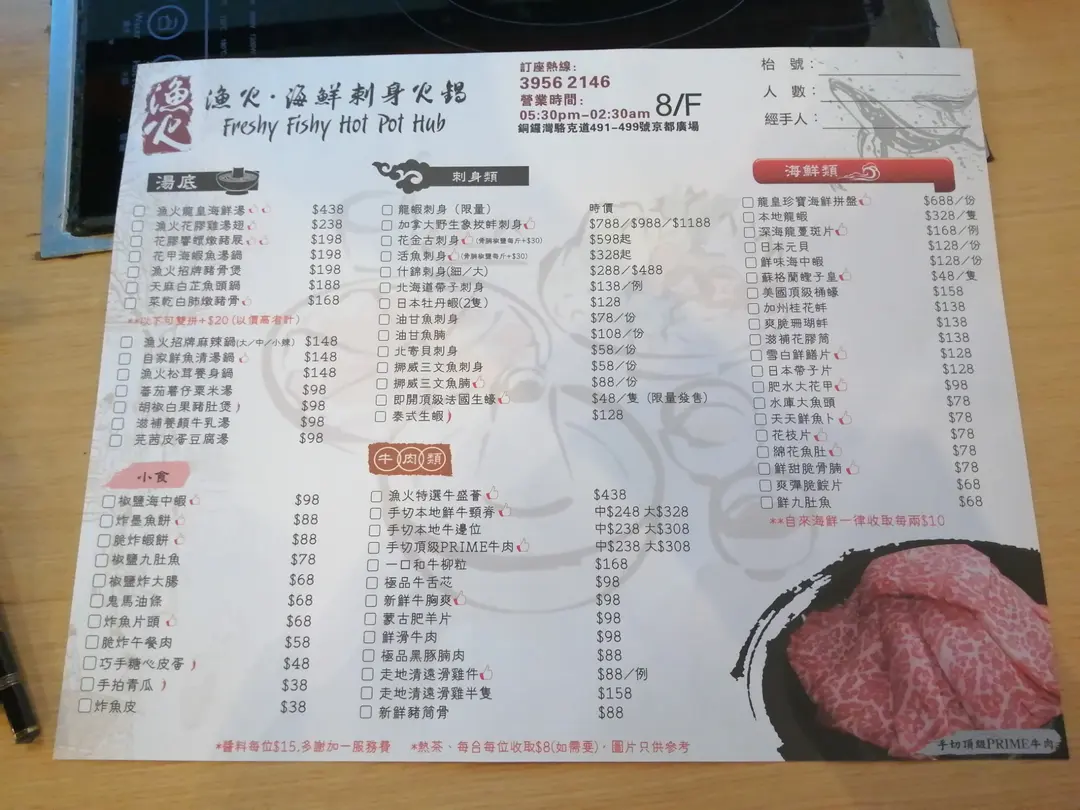 漁火
漁火·海鮮刺身火鍋
Freshy Fishy Hot Pot Hub
訂座熱線:
3956 2146
營業時間:
05:30pm-02:30am 8/F
銅鑼灣駱克道491-499號京都廣場
枱 號:
人 數:
經手人:
湯底
漁火龍皇海鮮湯 $438
漁火花膠雞湯翅 $238
花膠響螺燉豬𦟌 $198
花甲海蝦魚湯鍋 $198
漁火招牌豬骨煲 $198
天麻白芷魚頭鍋 $188
菜乾白肺燉豬骨 $168
**以下可雙拼+$20(以價高者計)
漁火招牌麻辣鍋(大/中/小辣) $148
自家鮮魚清湯鍋 $148
漁火松茸養身鍋 $148
蕃茄薯仔粟米湯 $98
胡椒白果豬肚煲 $98
滋補養顏牛乳湯 $98
芫茜皮蛋豆腐湯 $98
小食
椒鹽海中蝦 $98
炸墨魚餅 $88
脆炸蝦餅 $88
椒鹽九肚魚 $78
椒鹽炸大腸 $68
鬼馬油條 $68
炸魚片頭 $68
脆炸午餐肉 $58
巧手糖心皮蛋 $48
手拍青瓜 $38
炸魚皮 $38
刺身類
龍蝦刺身 (限量) 時價
加拿大野生象拔蚌刺身 $788/$988/$1188
花金古刺身(骨腩椒鹽每斤+$30) $598起
活魚刺身(骨腩椒鹽每斤+$30) $328起
什錦刺身(細/大) $288/$488
北海道帶子刺身 $138/例
日本牡丹蝦(2隻) $128
油甘魚刺身 $78/份
油甘魚腩 $108/份
北寄貝刺身 $58/份
挪威三文魚刺身 $58/份
挪威三文魚腩 $88/份
即開頂級法國生蠔 $48/隻 (限量發售)
泰式生蝦 $128
牛肉類
漁火特選牛盛薈 $438
手切本地鮮牛頸脊 中$248 大$328
手切本地牛邊位 中$238 大$308
手切頂級PRIME牛肉 中$238 大$308
一口和牛柳粒 $168
極品牛舌芯 $98
新鮮牛胸爽 $98
蒙古肥羊片 $98
鮮滑牛肉 $98
極品黑豚腩肉 $88
走地清遠滑雞件 $88/例
走地清遠滑雞半隻 $158
新鮮豬筒骨 $88
海鮮類
龍皇珍寶海鮮拼盤 $688/份
本地龍蝦 $328/隻
深海龍躉斑片 $168/例
日本元貝 $128/份
鮮味海中蝦 $128/份
蘇格蘭蟶子皇 $48/隻
美國頂級桶蠔 $158
加州桂花蚌 $138
爽脆珊瑚蚌 $138
滋補花膠筒 $138
雪白鮮鱔片 $128
日本帶子片 $128
肥水大花甲 $98
水庫大魚頭 $78
天天鮮魚卜 $78
花枝片 $78
綿花魚肚 $78
鮮甜脆骨腩 $78
爽彈脆鯇片 $68
鮮九肚魚 $68
**自來海鮮一律收取每兩$10
手切頂級PRIME牛肉
*醬料每位$15.多謝加一服務費 *熱茶、每台每位收取$8(如需要)。圖片只供參考